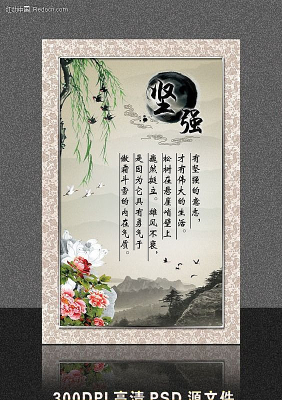 红动中国 Redocn.com
坚强
有坚强的意志，
才有伟大的生活。
松树在悬崖峭壁上
巍然挺立。雄风不衰，
是因为它具有勇气于
傲霜斗雪的内在气质。
300DPI高清PSD源文件